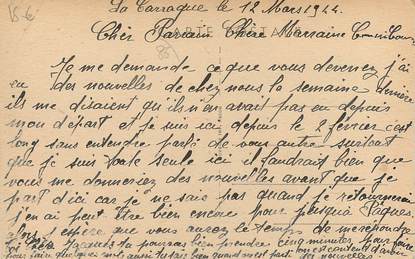 La Carraque le 12 Mars 1944
Cher Parrain Chère Marraine
CARTE POSTALE
15 €
Je me demande ce que vous devenez j'ai
eu des nouvelles de chez nous la semaine dernière
ils me disaient qu'ils n'en avait pas eu depuis
mon départ et je suis ici depuis le 2 février c'est
long sans entendre parlé de vous autre surtout
que je suis toute seule ici il faudrait bien que
vous me donneriez des nouvelles avant que je
part d'ici car je ne sais pas quand je retournerai
j'en ai peut être bien encore pour jusqu'à Pâques
alors j'espère que vous aurez le temps de me répondre
Jacques tu pourras bien prendre cinq minutes pour
faire quelques mots aussi tu sais bien quand on est parti on est content d'avoir
des nouvelles